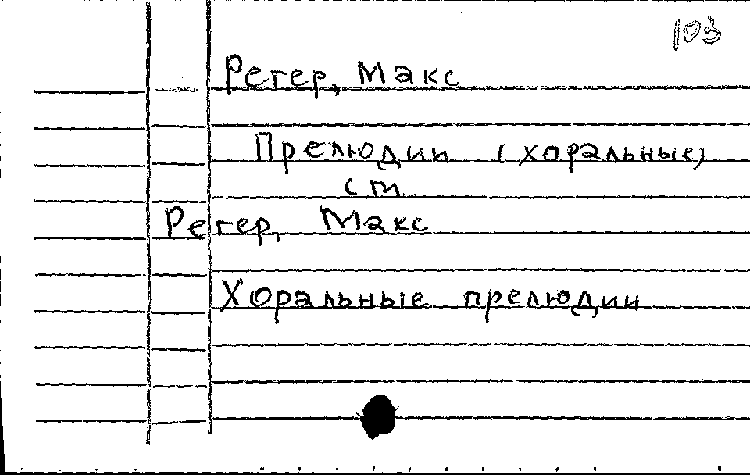 103
Регер, Макс
Прелюдии (хоральные)
см
Регер, Макс
Хоральные прелюдии